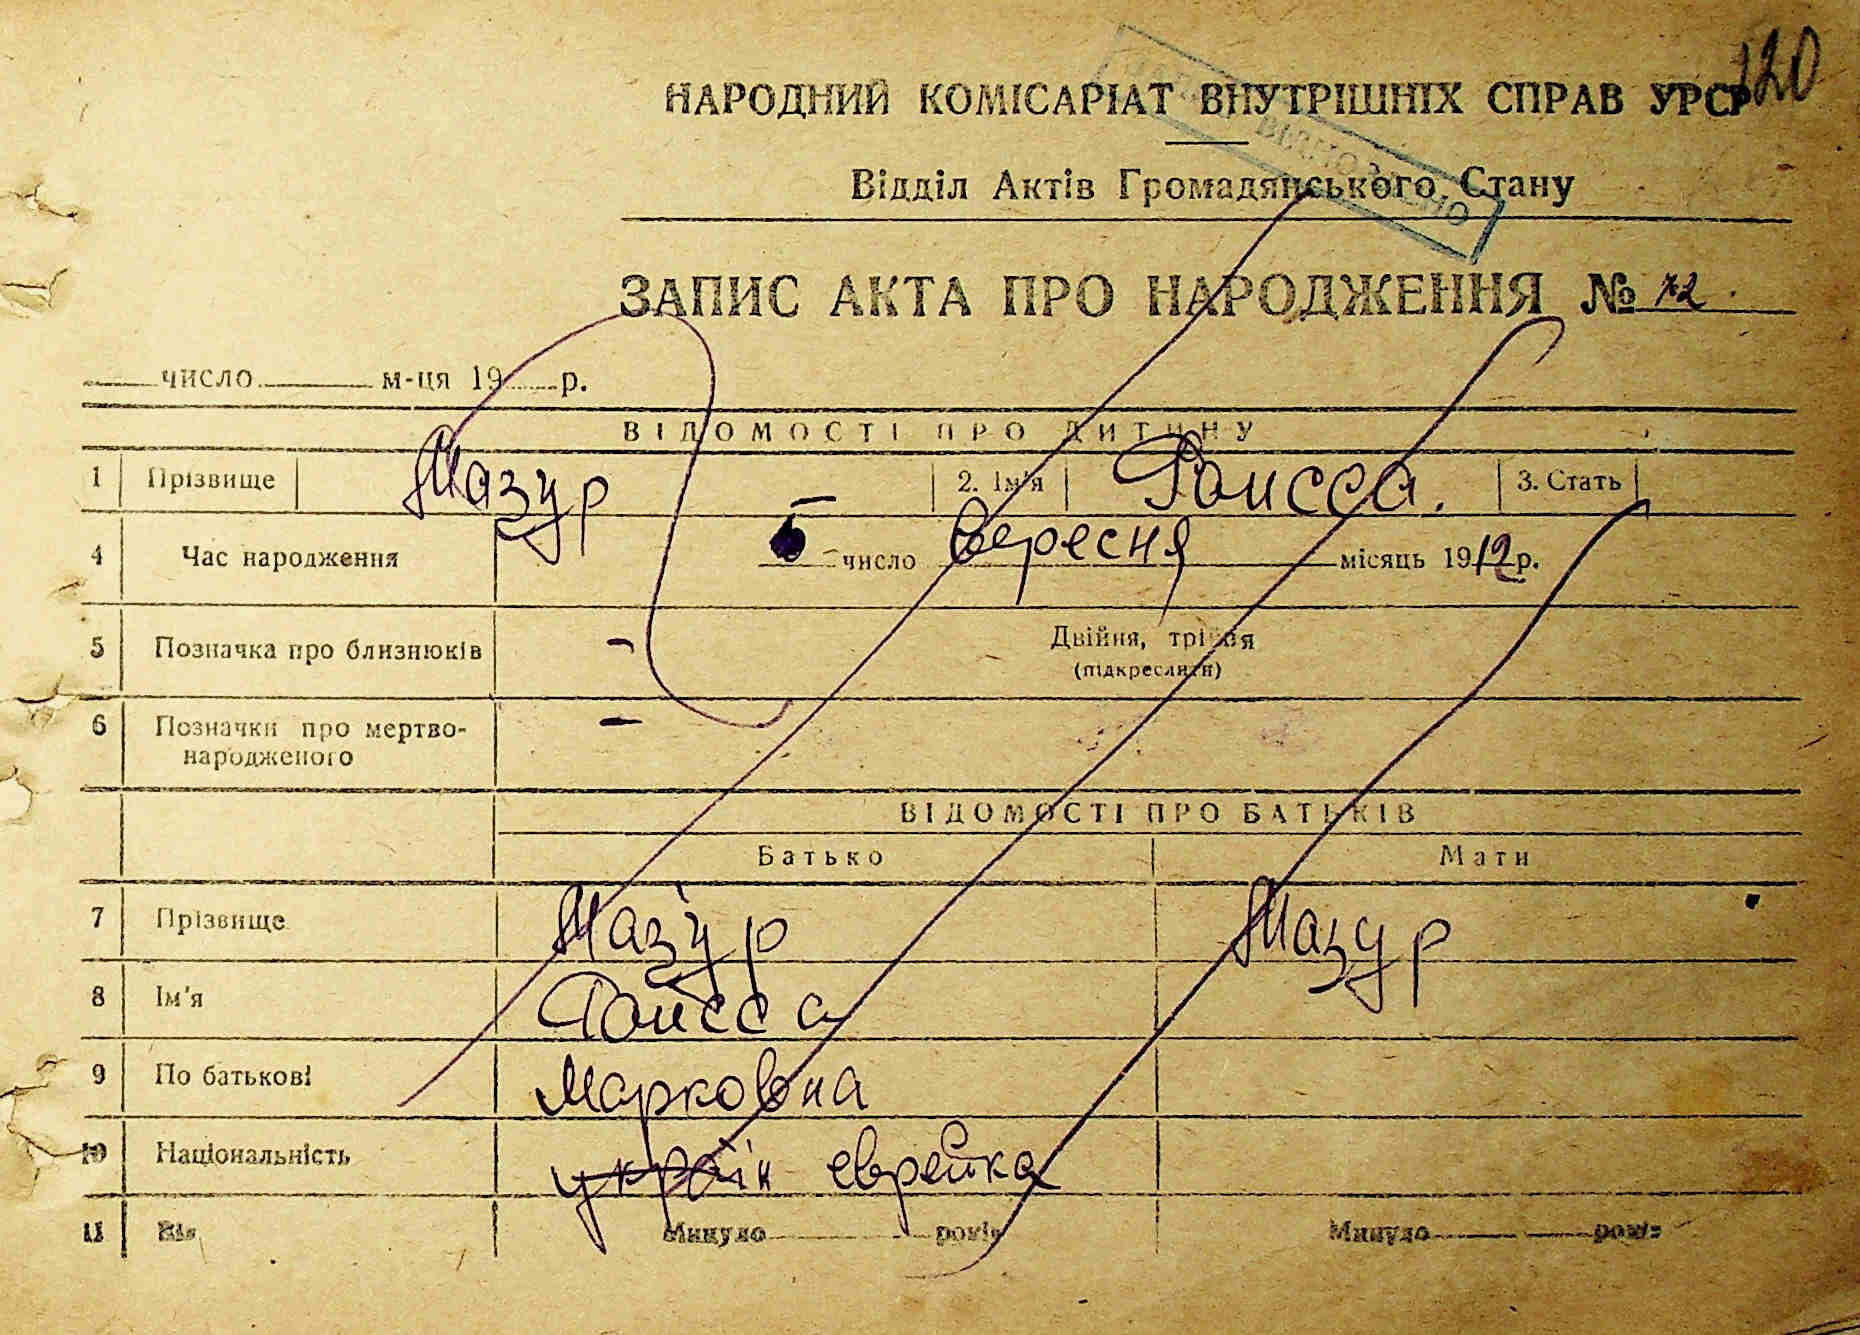 120
НАРОДНИЙ КОМІСАРІАТ ВНУТРІШНІХ СПРАВ УРСР
Відділ Актів Громадянського Стану
ВІДНОВЛЕНО
ЗАПИС АКТА ПРО НАРОДЖЕННЯ № 72
число м-ця 19 р.
ВІДОМОСТІ ПРО ДИТИНУ
1 Прізвище Мазур 2. Ім'я Роисса. 3. Стать
4 Час народження число вересня місяць 1912 р.
5 Позначка про близнюків - Двійня, трійня
(підкреслити)
6 Позначки про мертво- -
народженого
ВІДОМОСТІ ПРО БАТЬКІВ
Батько Мати
7 Прізвище Мазур Мазур
8 Ім'я Роисса
9 По батькові Марковна
10 Національність україн еврейка
11 Вік Минуло років Минуло років